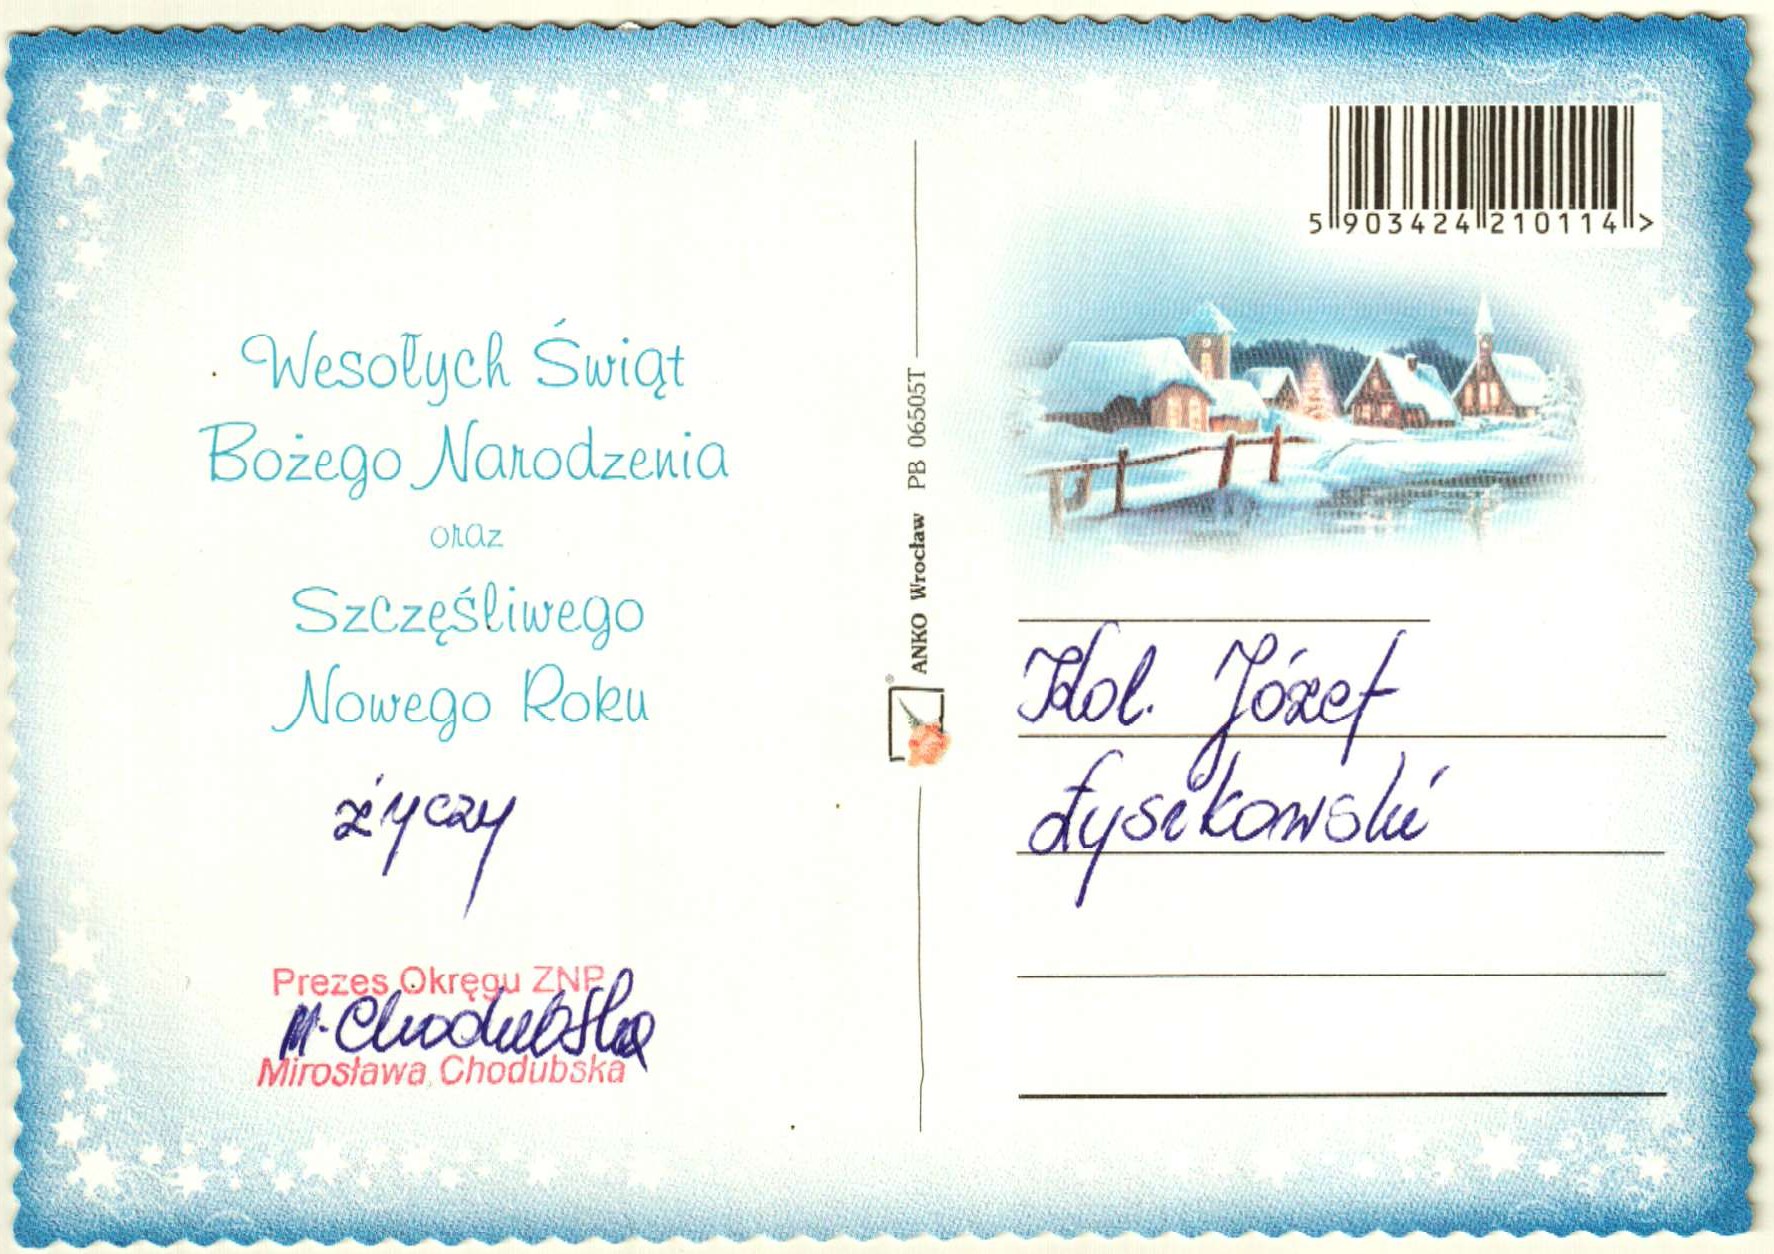 Wesołych Świąt
Bożego Narodzenia
oraz
Szczęśliwego
Nowego Roku
życzy
Prezes Okręgu ZNP
M. Chodubska
Mirosława Chodubska
ANKO Wrocław PB 06505T
®
5 903424 210114 >
Kol. Józef
Łysikowski